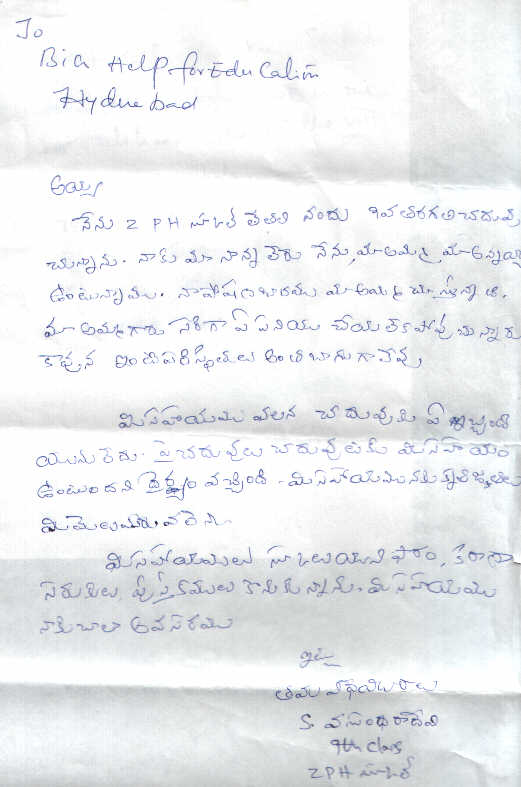 To
Big Help for Education
Hyderabad
అయ్యా
నేను Z PH స్కూల్ తేతలి నందు 9వ తరగతి చదువు
చున్నాను. నాకు మా నాన్న లేరు నేను, మా అమ్మ మా అన్నయ్య
ఉంటున్నాము. నా పోషణ భారము మా అమ్మ చూస్తున్నది.
మా అమ్మగారు సరిగా ఏ పనియు చేయలేకపోవుచున్నారు
కావున ఇంటి పరిస్థితులు అంత బాగుగా లేవు
మీ సహాయము వలన చదువుకి ఏ ఇబ్బంది
యును లేదు. పై చదువులు చదువుటకు మీ సహాయం
ఉంటుందని ధైర్యం వచ్చింది. మీ సహాయమునకు కృతజ్ఞతలు
మీ మేలు మరువలేని.
మీ సహాయములు స్కూలు యూనిఫారం, కిరాణా
సరుకులు, పుస్తకములు కొనుకున్నాను. మీ సహాయము
నాకు చాలా అవసరము
ఇట్లు
తమ విధేయురాలు
S. వసుంధరాదేవి
9th class
ZPH స్కూల్